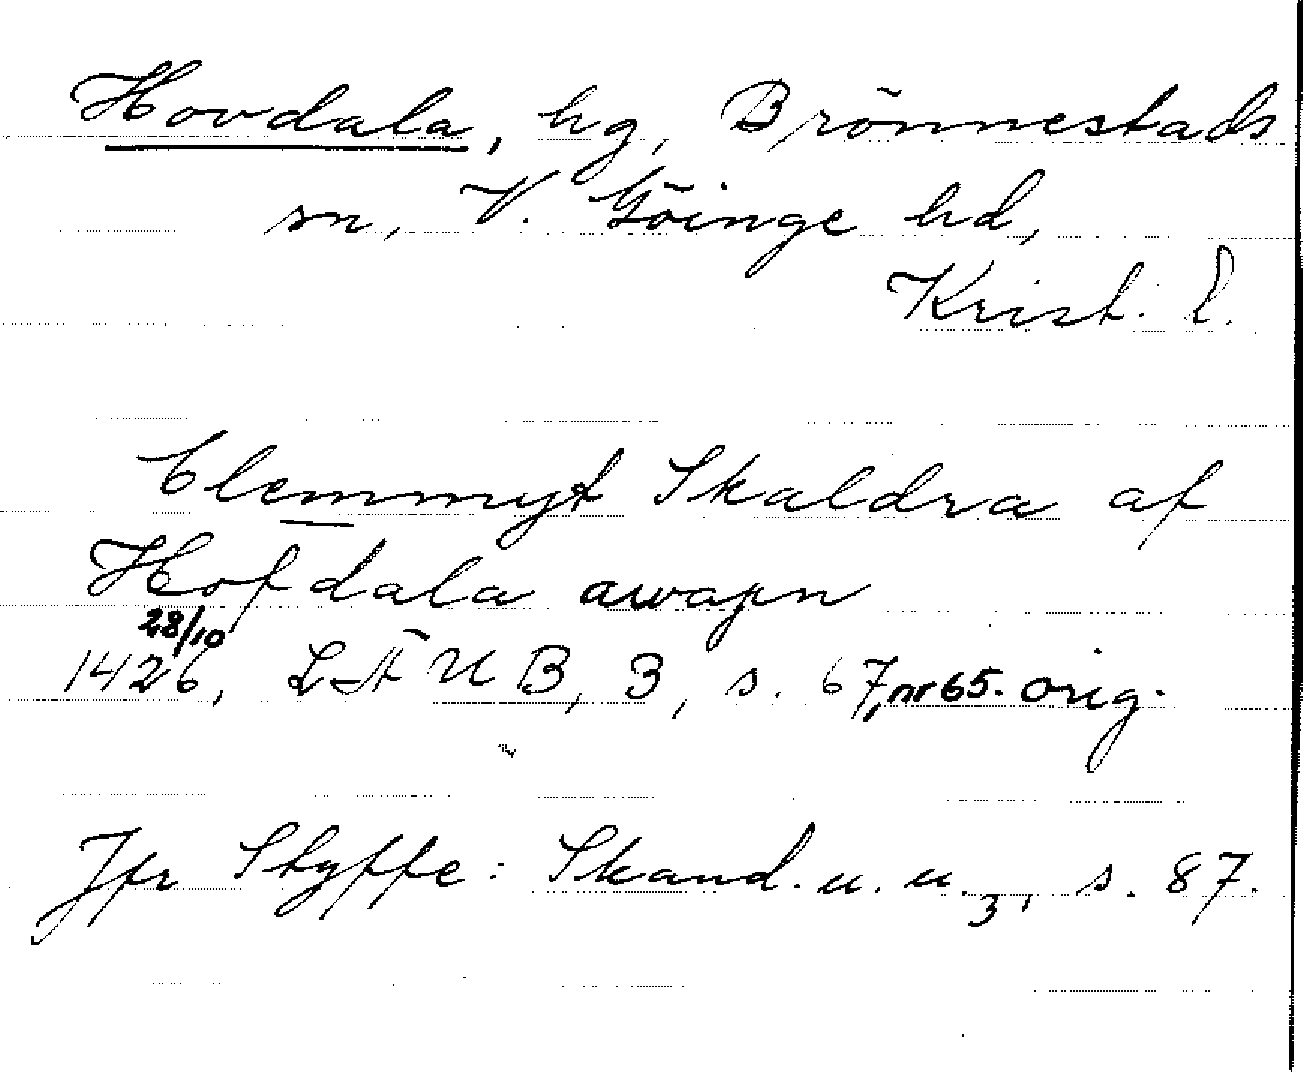 Hovdala, hg, Brönnestads
sn, V. Göinge hd,
Krist. l.
Clemmyt Skaldra af
Hofdala awapn
28/10
1426, LÄUB, 3, s. 67, nr 65. orig.
Jfr Styffe: Skand. u. u.3, s. 87.